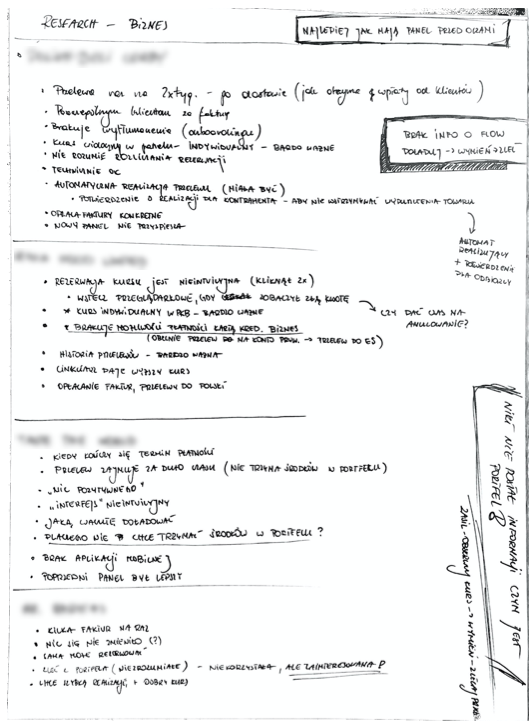 RESEARCH - BIZNES
NAJLEPIEJ JAK MAJĄ PANEL PRZED OCZAMI
Przelewa raz na 2x tyg. - po dostawie (jak otrzyma wpłaty od klientów)
klientom za faktury
Brakuje wytłumaczenia (onboardingu)
Kurs widoczny w panelu - INDYWIDUALNY - BARDZO WAŻNE
NIE ROZUMIE ROZLICZANIA REZERWACJI
TERMINNIE OK
AUTOMATYCZNA REALIZACJA PRZELEWU (MIAŁA BYĆ)
POTWIERDZENIE O REALIZACJI DLA KONTRAHENTA - ABY NIE WSTRZYMYWAĆ WYPUSZCZENIA TOWARU
OPŁACA FAKTURY KONKRETNE
NOWY PANEL NIE PRZYSPIESZA
BRAK INFO O FLOW
DOŁADUJ → WYMIEŃ → ZLEĆ
AUTOMAT REALIZUJĄCY
+ POTWIERDZENIE
DLA ODBIORCY
REZERWACJA KURSU JEST NIEINTUICYJNA (KLIKNĄĆ 2x)
WSTECZ PRZEGLĄDARKOWE, GDY ZOBACZYŁ ZŁĄ KWOTĘ
CZY DAĆ CZAS NA ANULOWANIE?
* KURS INDYWIDUALNY W PLN - BARDZO WAŻNE
* BRAKUJE MOŻLIWOŚCI PŁATNOŚCI KARTĄ KRED. BIZNES
(OBECNIE PRZELEW NA KONTO PRYW. → PRZELEW DO ES)
HISTORIA PRZELEWÓW - BARDZO WAŻNA
CINKCIARZ DAJE WYŻSZY KURS
OPŁACANIE FAKTUR, PRZELEWY DO POLSKI
KIEDY KOŃCZY SIĘ TERMIN PŁATNOŚCI
PRZELEW ZAJMUJE ZA DUŻO CZASU (NIE TRZYMA ŚRODKÓW W PORTFELU)
"NIC POZYTYWNEGO"
"INTERFEJS" NIEINTUICYJNY
JAKĄ WALUTĘ DOŁADOWAĆ
DLACZEGO NIE CHCE TRZYMAĆ ŚRODKÓW W PORTFELU?
BRAK APLIKACJI MOBILNEJ
POPRZEDNI PANEL BYŁ LEPSZY
NIKT NIE DOSTAŁ INFORMACJI CZYM JEST PORTFEL?
KILKA FAKTUR NA RAZ
NIC SIĘ NIE ZMIENIŁO (?)
SAMA MOŻE REZERWOWAĆ
Z PORTFELA (NIEZROZUMIAŁE) - NIEKORZYSTAŁA, ALE ZAINTERESOWANA
CHCE SZYBKĄ REALIZACJĘ + DOBRY KURS